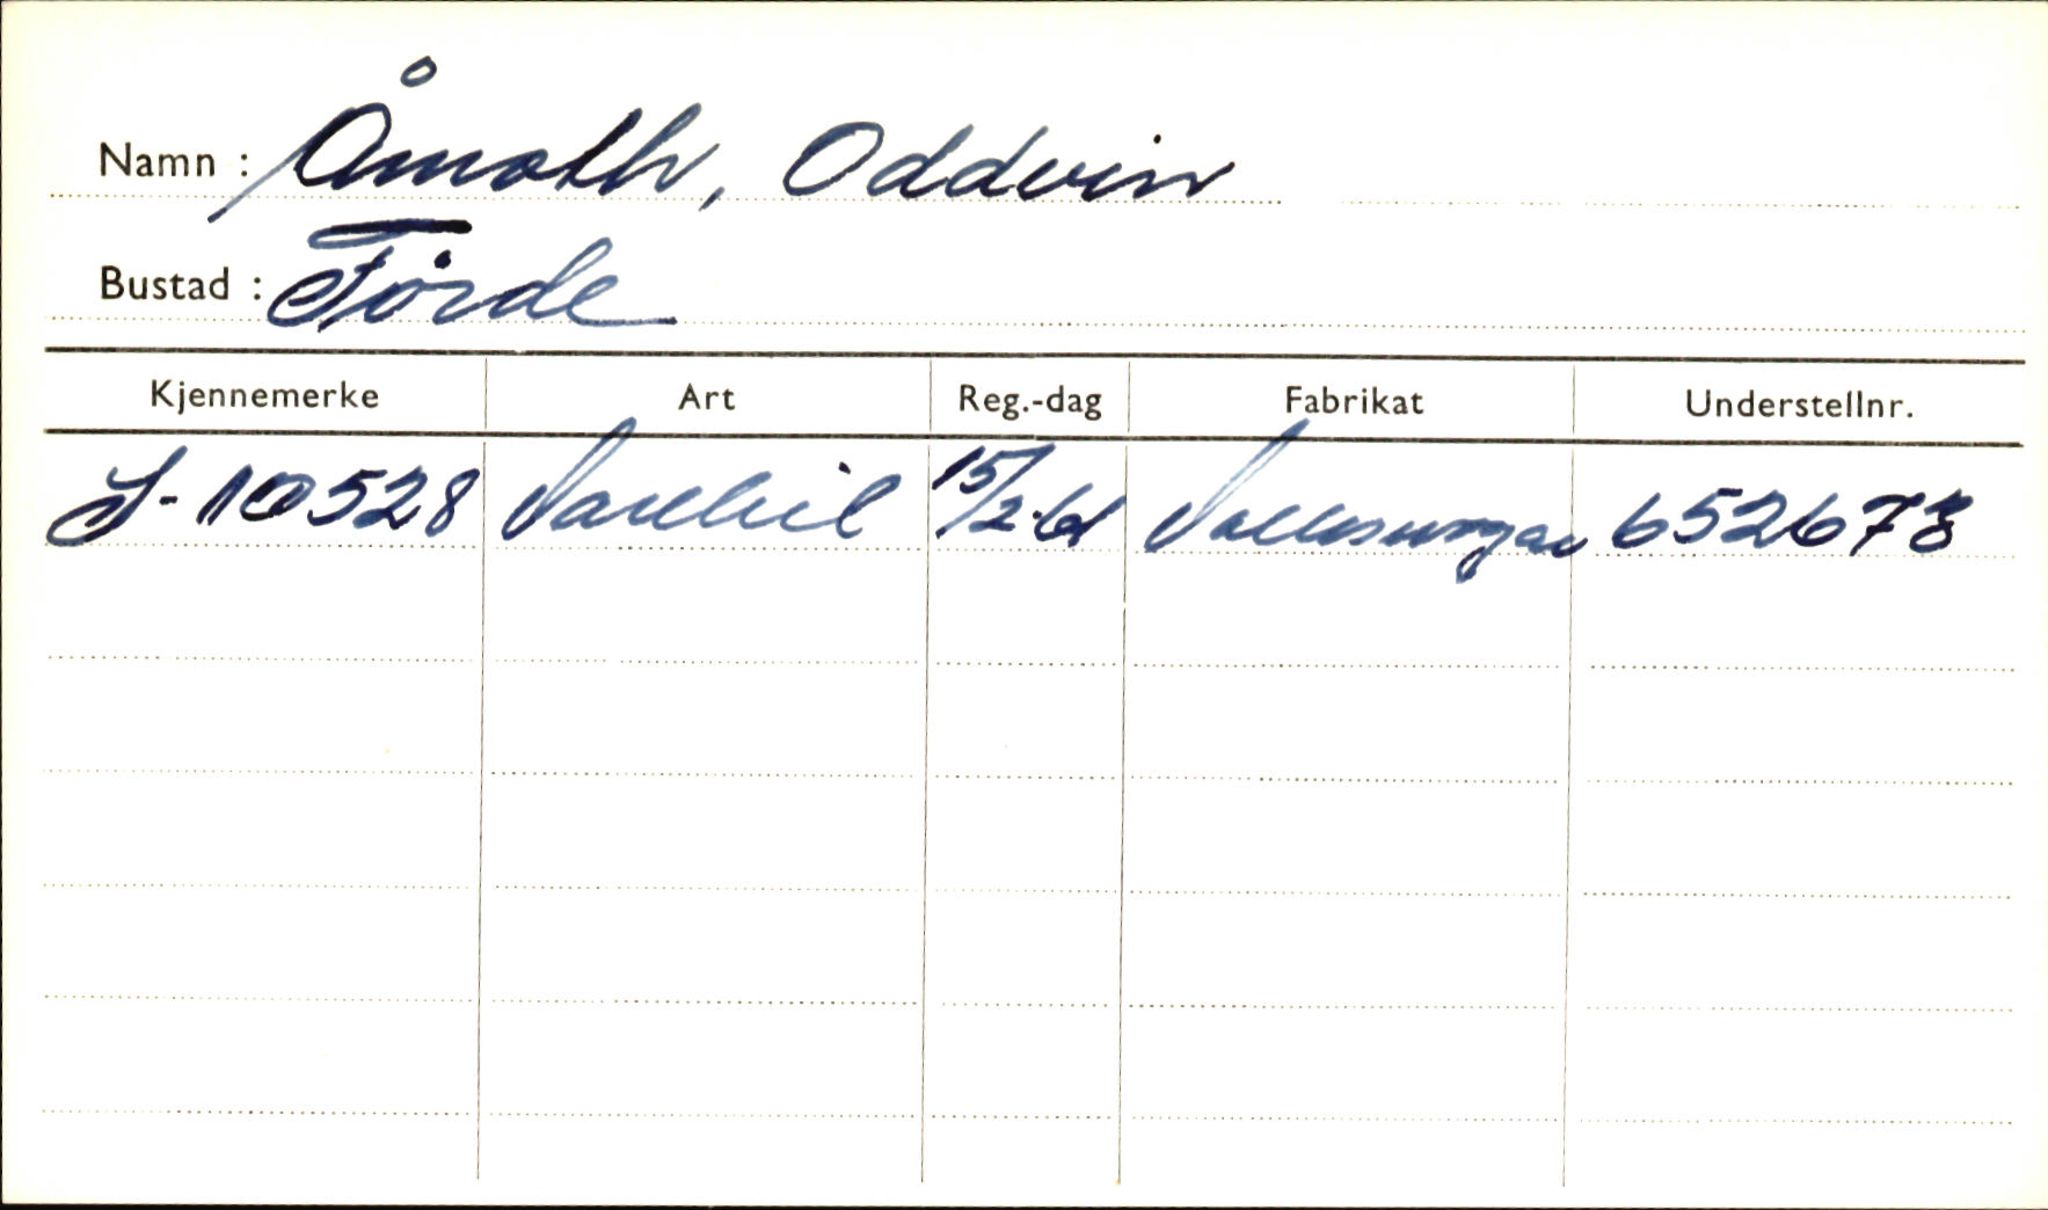 Namn : Åmoth, Oddvin
Bustad : Förde
Kjennemerke Art Reg.-dag Fabrikat Understellnr.
S-10528 Varebil 15/2-61 Volkswagen 652678